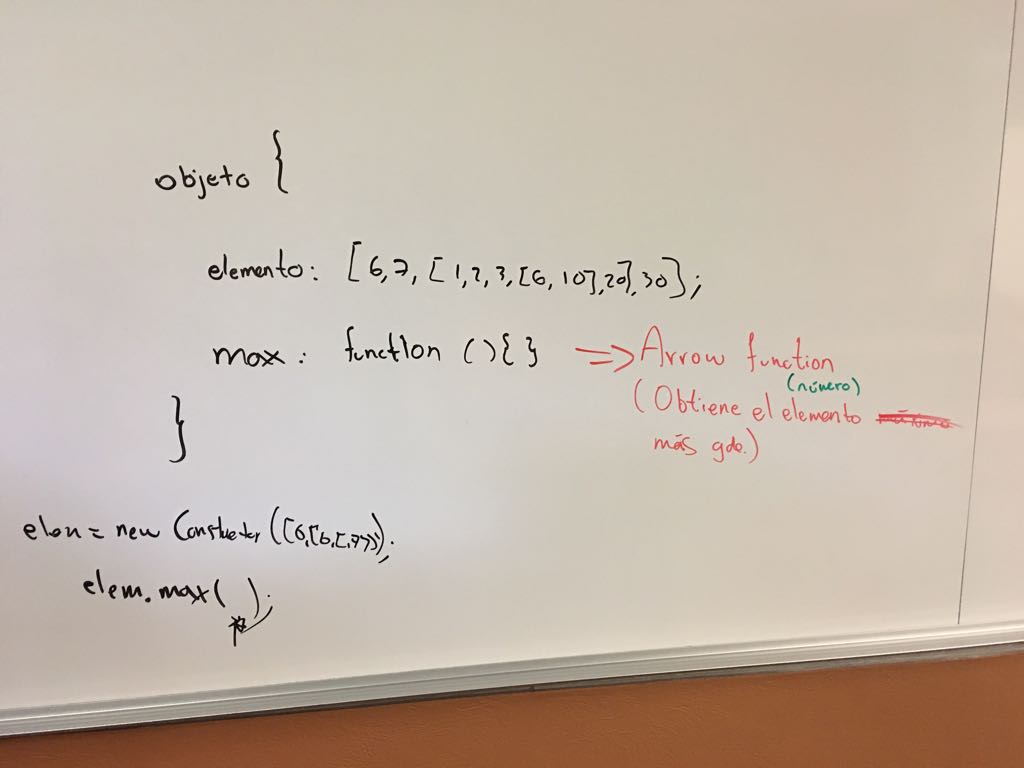 objeto {
elemento: [6,7, [1,2,3,[6, 10],20],30];
max: function (){ } => Arrow function
(número)
(Obtiene el elemento
más gde.)
}
= new
elem.max( );
*